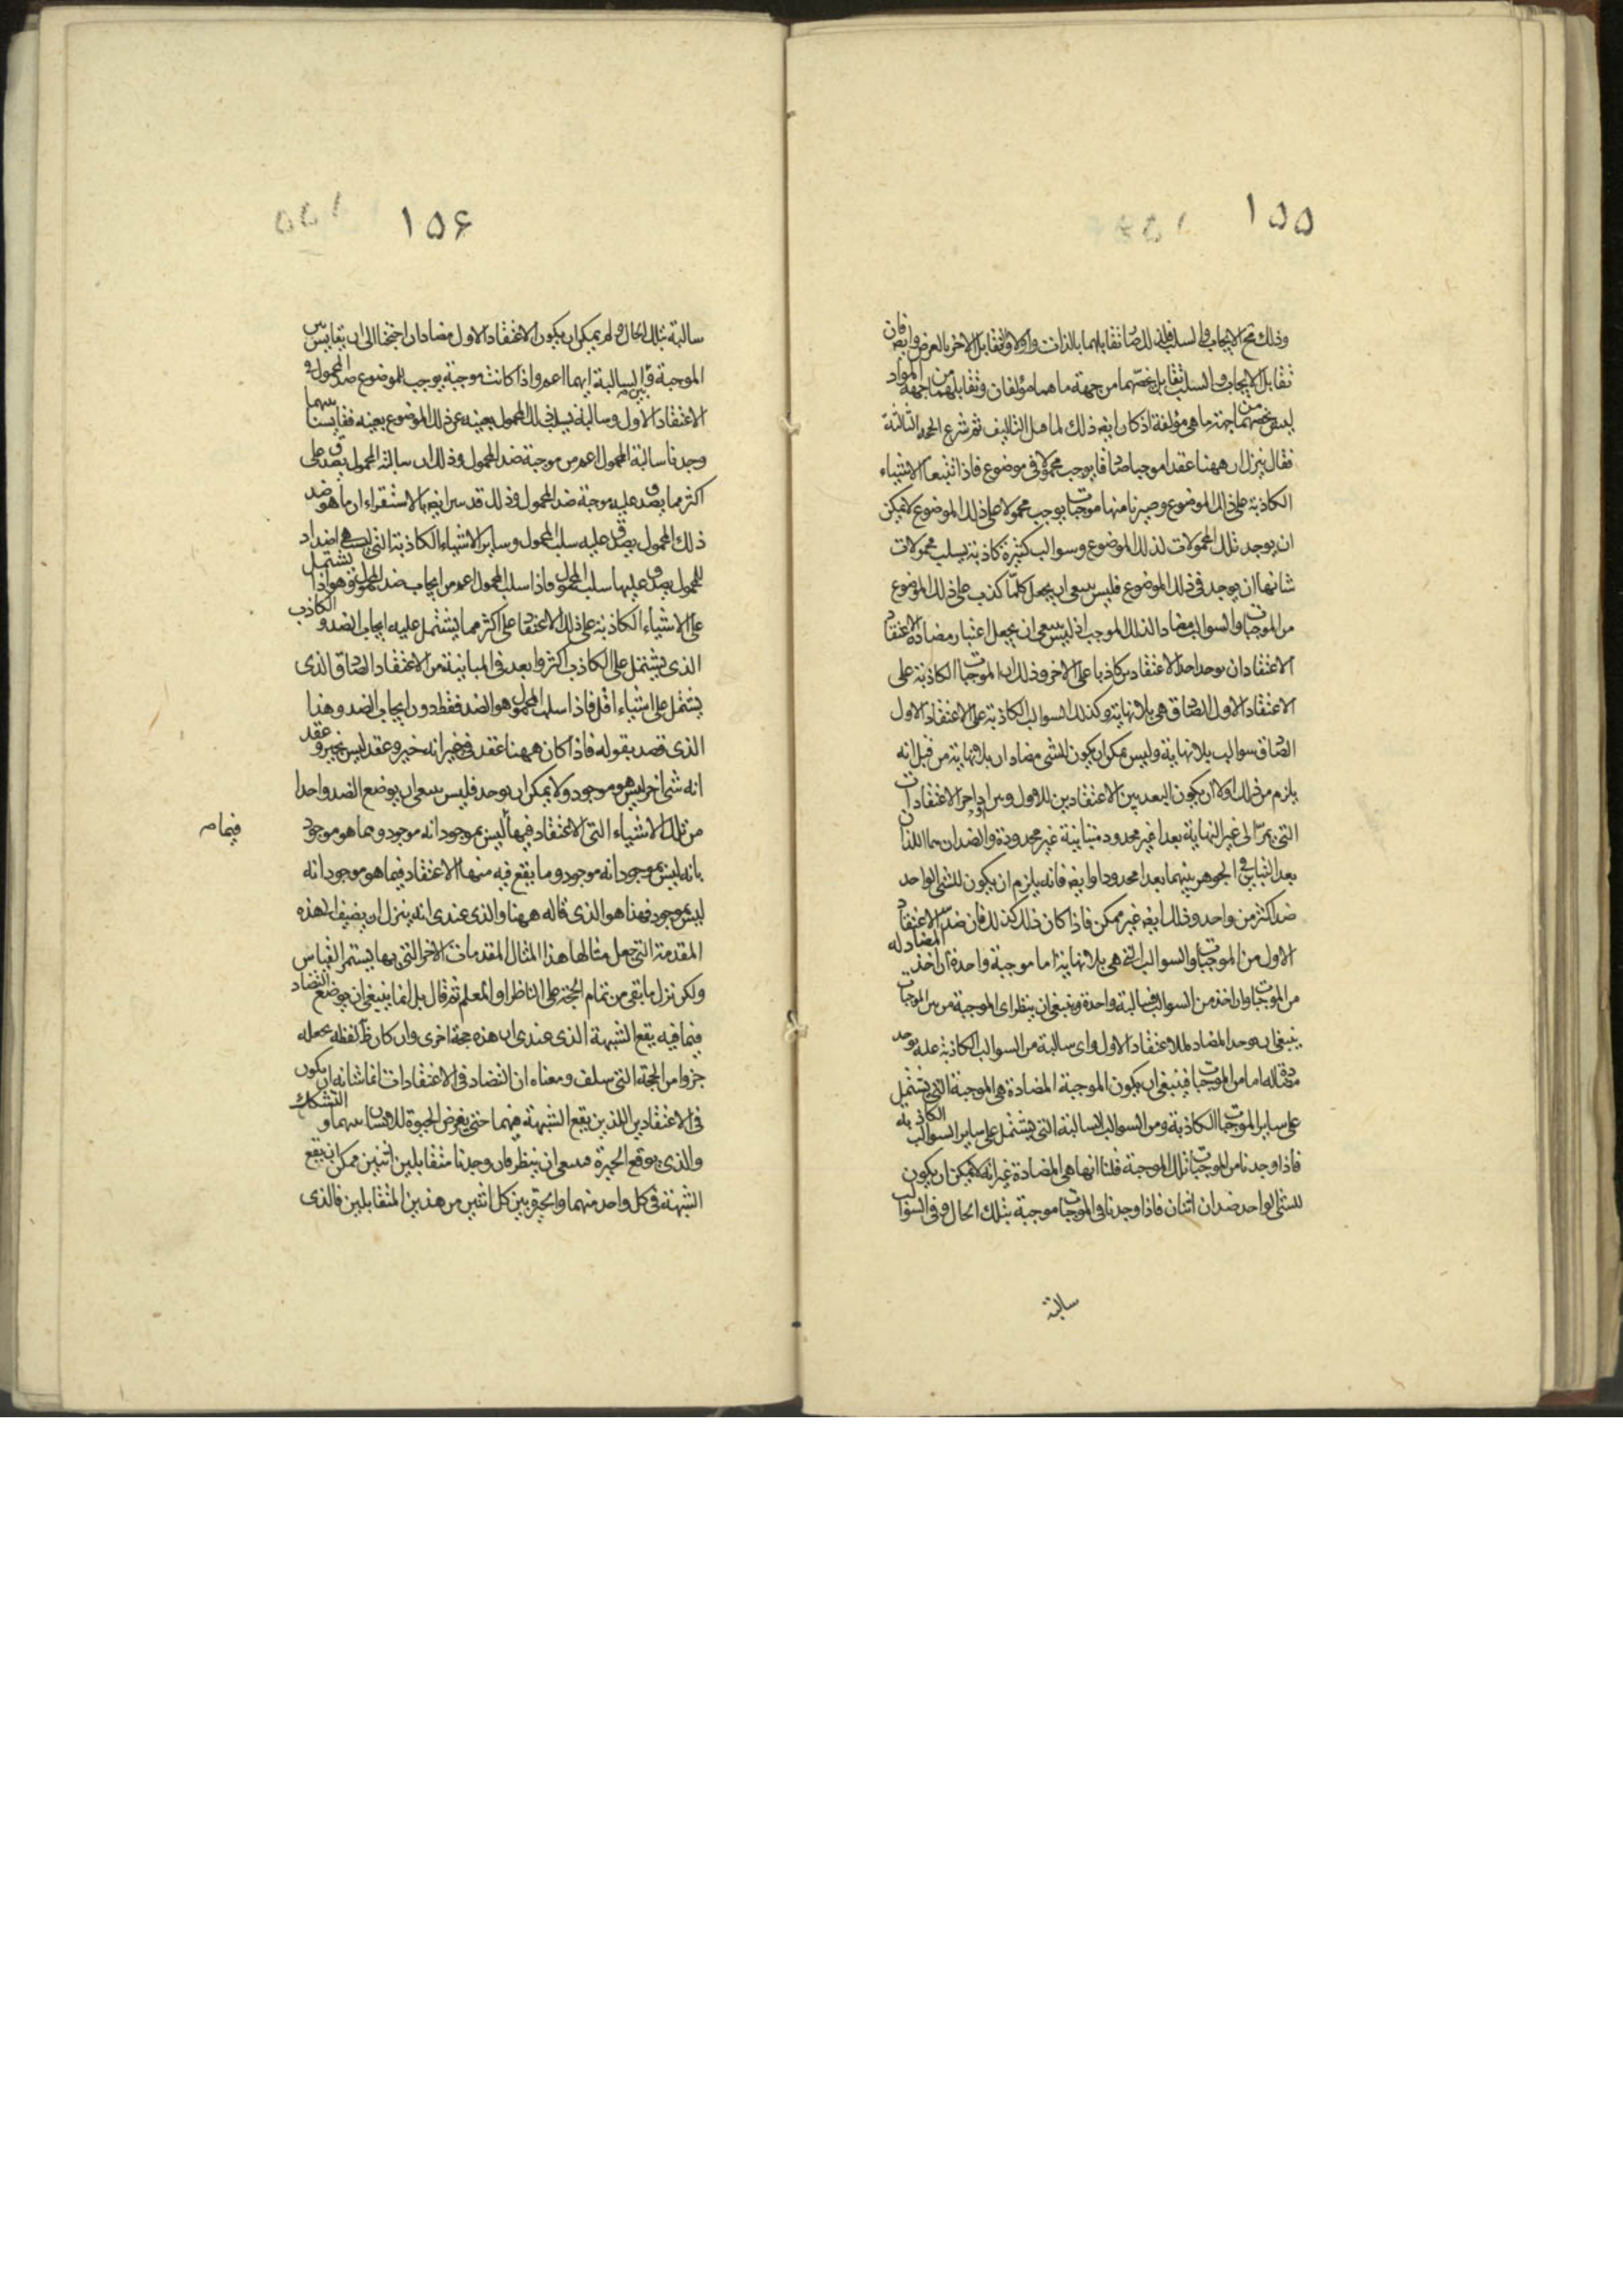 ١٥٥
وذلك مع الايجاب والسلب فلذلك صار تقابلهما بالذات واولا وتقابل الاخر بالعرض وايضا فان
تقابل الايجاب والسلب تقابل يخصهما من جهة ما هما مؤلفان وتقابلهما من جهة المواد
ليس يخصهما من جهة ما هي مؤلفة اذ كان ايضه ذلك لما قبل التاليف ثم شرع الحجة الثالثة
فقال ننزل ان ههنا عقدا موجبا صادقا يوجب محمولا في موضوع فاذا تتبعنا الاشياء
الكاذبة على ذلك الموضوع وصيرنا منها موجبات يوجب محمولا على ذلك الموضوع لا يمكن
ان يوجد تلك المحمولات لذلك الموضوع وسوالب كثيرة كاذبة يسلب محمولات
شانها ان يوجد في ذلك الموضوع فليس ينبغى ان يجعل كلما كذب على ذلك الموضوع
من الموجبات والسوالب مضادا لذلك الموجب اذ ليس ينبغى ان يجعل اعتبار مضادة الاعتقاد
الاعتقاد ان يوجد احد الاعتقادين كاذبا على الاخر وذلك ان الموجبات الكاذبة على
الاعتقاد الاول الصادق هي بلا نهاية وكذلك السوالب الكاذبة على الاعتقاد الاول
الصادق سوالب بلا نهاية وليس يمكن ان يكون لشئ مضادان بلا نهاية من قبل انه
يلزم من ذلك اولا ان يكون البعد بين الاعتقادين للاول وبين اواخر الاعتقادات
التي يمر الى غير النهاية بعدا غير محدود متباينة غير محدودة والضدان هما اللذان
بعد التباين في الجوهر بينهما بعدا محدودا وايضه فانه يلزم ان يكون للشئ الواحد
ضد اكثر من واحد وذلك ايضه غير ممكن فاذا كان ذلك كذلك فان ضد الاعتقاد
الاول من الموجبات والسوالب التي هي بلا نهاية اما موجبة واحدة ان اخذ المضاد له
من الموجبات وان اخذ من السوالب فسالبة واحدة وينبغى ان ينظر اى الموجبة من بين الموجبات
ينبغى ان يوجد المضاد للاعتقاد الاول واى سالبة من السوالب الكاذبة عليه يوجد
مضادة له اما من الموجبات فينبغى ان يكون الموجبة المضادة هي الموجبة التي يشتمل
على ساير الموجبات الكاذبة ومن السوالب السالبة التي يشتمل على ساير السوالب الكاذبة
فاذا وجدنا من الموجبات تلك الموجبة قلنا انها هي المضادة غير انه لا يمكن ان يكون
للشئ الواحد ضدان اثنان فاذا وجدنا في الموجبات موجبة بتلك الحال وفي السوالب
سالبة
١٥۶
سالبة بتلك الحال ولم يمكن ان يكون للاعتقاد الاول مضادان احتجنا الى ان نقايس بين
الموجبة وبين السالبة ايهما اعم واذا كانت موجبة يوجب للموضوع ضد المحمول في
الاعتقاد الاول وسالبة يسلب ذلك المحمول بعينه عن ذلك الموضوع بعينه فقايسنا بينهما
وجدنا سالبة المحمول اعم من موجبة ضد المحمول وذلك ان سالبة المحمول يصدق على
اكثر مما يصدق عليه موجبة ضد المحمول وذلك قد يبين ايضه بالاستقراء ان ما هو ضد
ذلك المحمول يصدق عليه سلب المحمول وساير الاشياء الكاذبة التي ليست هي اضداد
للمحمول يصدق عليها سلب المحمول واذا سلب المحمول اعم من ايجاب ضد المحمول فهو اذا يشتمل
على الاشياء الكاذبة على ذلك الاعتقاد على اكثر مما يشتمل عليه ايجاب الضد والكاذب
الذي يشتمل على الكاذب اكثر وابعد في المباينة من الاعتقاد الصادق الذى
يشتمل على اشياء اقل فاذا سلب المحمول هو الضد فقط دون ايجاب الضد وهذا
الذى قصد بقوله فاذا كان ههنا عقد في خير انه خير وعقد ليس بخير وعقد
انه شئ اخر ليس هو موجود ولا يمكن ان يوجد فليس ينبغى ان يوضع الضد واحدا
من تلك الاشياء التي الاعتقاد فيها ليس بموجود انه موجود ومما هو موجود
فيما صه
بانه ليس بموجود انه موجود وما يقع فيه منها الاعتقاد فيما هو موجود انه
ليس بموجود فهذا هو الذى قاله ههنا والذى عندى انه ينزل ان يضيف الى هذه
المقدمة التي جعل مثالها هذا المثال المقدمات الاخر التي بها يستمر القياس
ولكن نزل ما بقى من تمام الحجة على الناظر او المعلم ثم قال بل انما ينبغى ان يوضع التضاد
فيما فيه يقع الشبهة الذى عندى ان هذه حجة اخرى وان كان ظ لفظه يجعله
جزوا من الحجة التي سلف ومعناه ان التضاد في الاعتقادات انما شانه ان يكون
في الاعتقادين اللذين يقع الشبهة فيهما حتى يعرض الحيرة للانسان بينهما والتشكك
والذى يوقع الحيرة فينبغى ان ينظر فان وجدنا متقابلين اثنين ممكن ان يقع
الشبهة في كل واحد منهما والحيرة بين كل اثنين من هذين المتقابلين فالذى